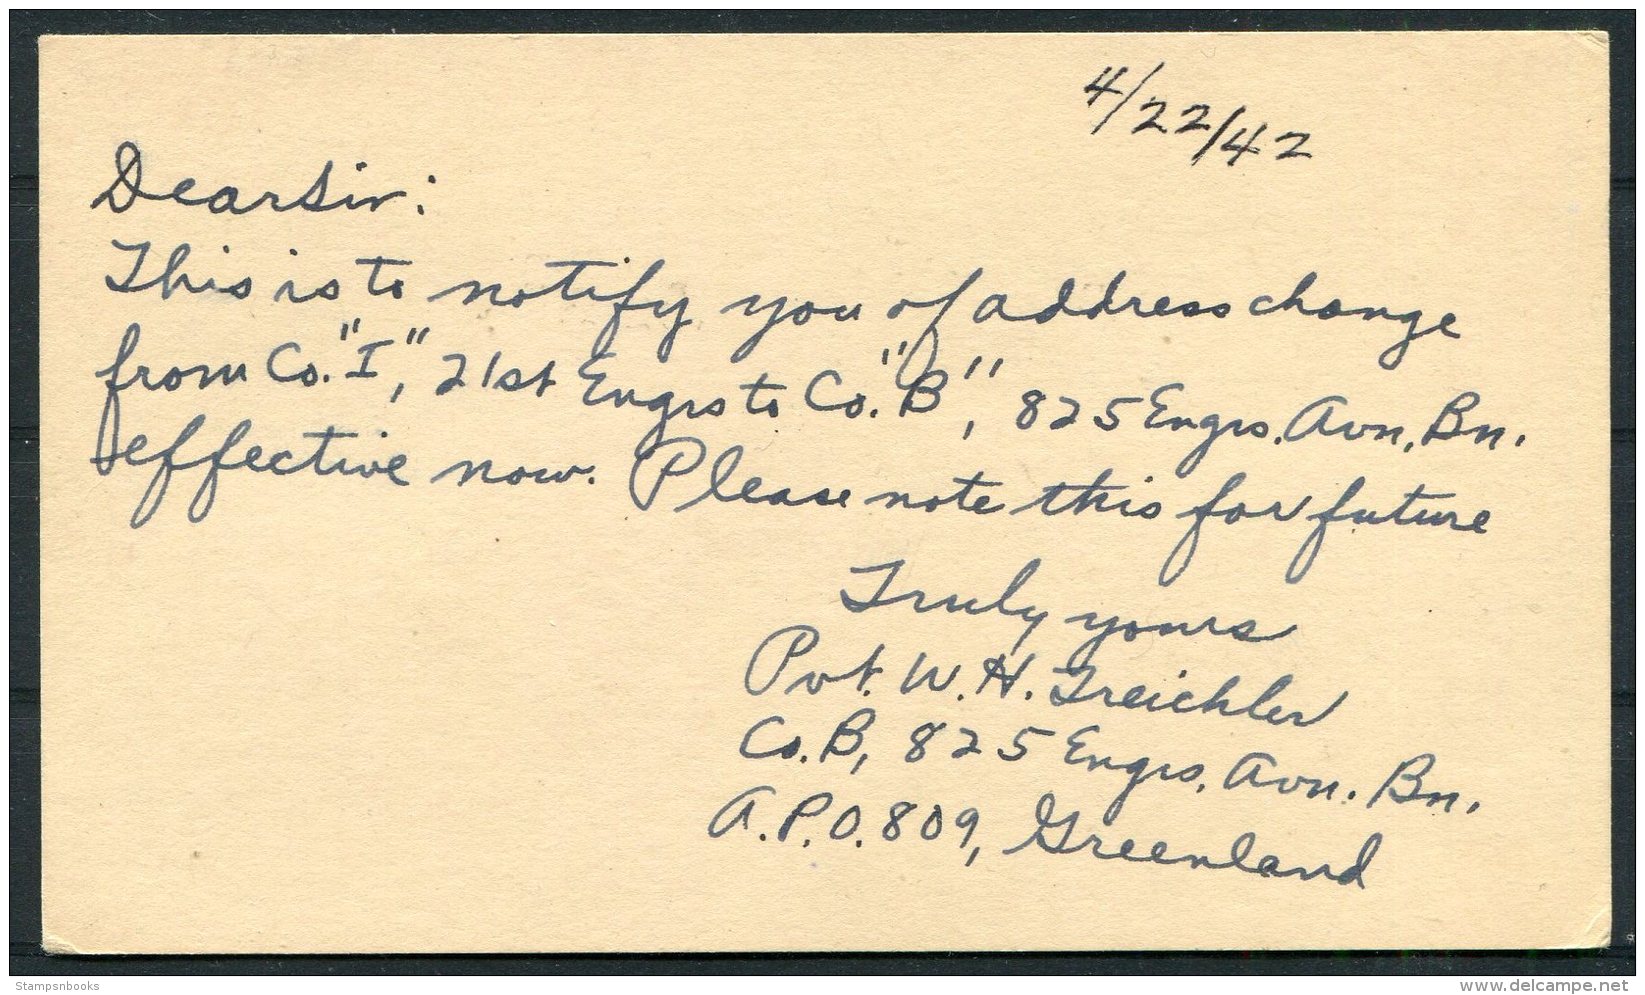 4/22/42
Dear Sir:
This is to notify you of address change
from Co. "I", 21st Engrs to Co. "B", 825 Engrs. Avn. Bn.
effective now. Please note this for future
Truly yours
Pvt. W. H. Treichler
Co. B, 825 Engrs. Avn. Bn.
A.P.O. 809, Greenland
Stampsnbooks
www.delcampe.net